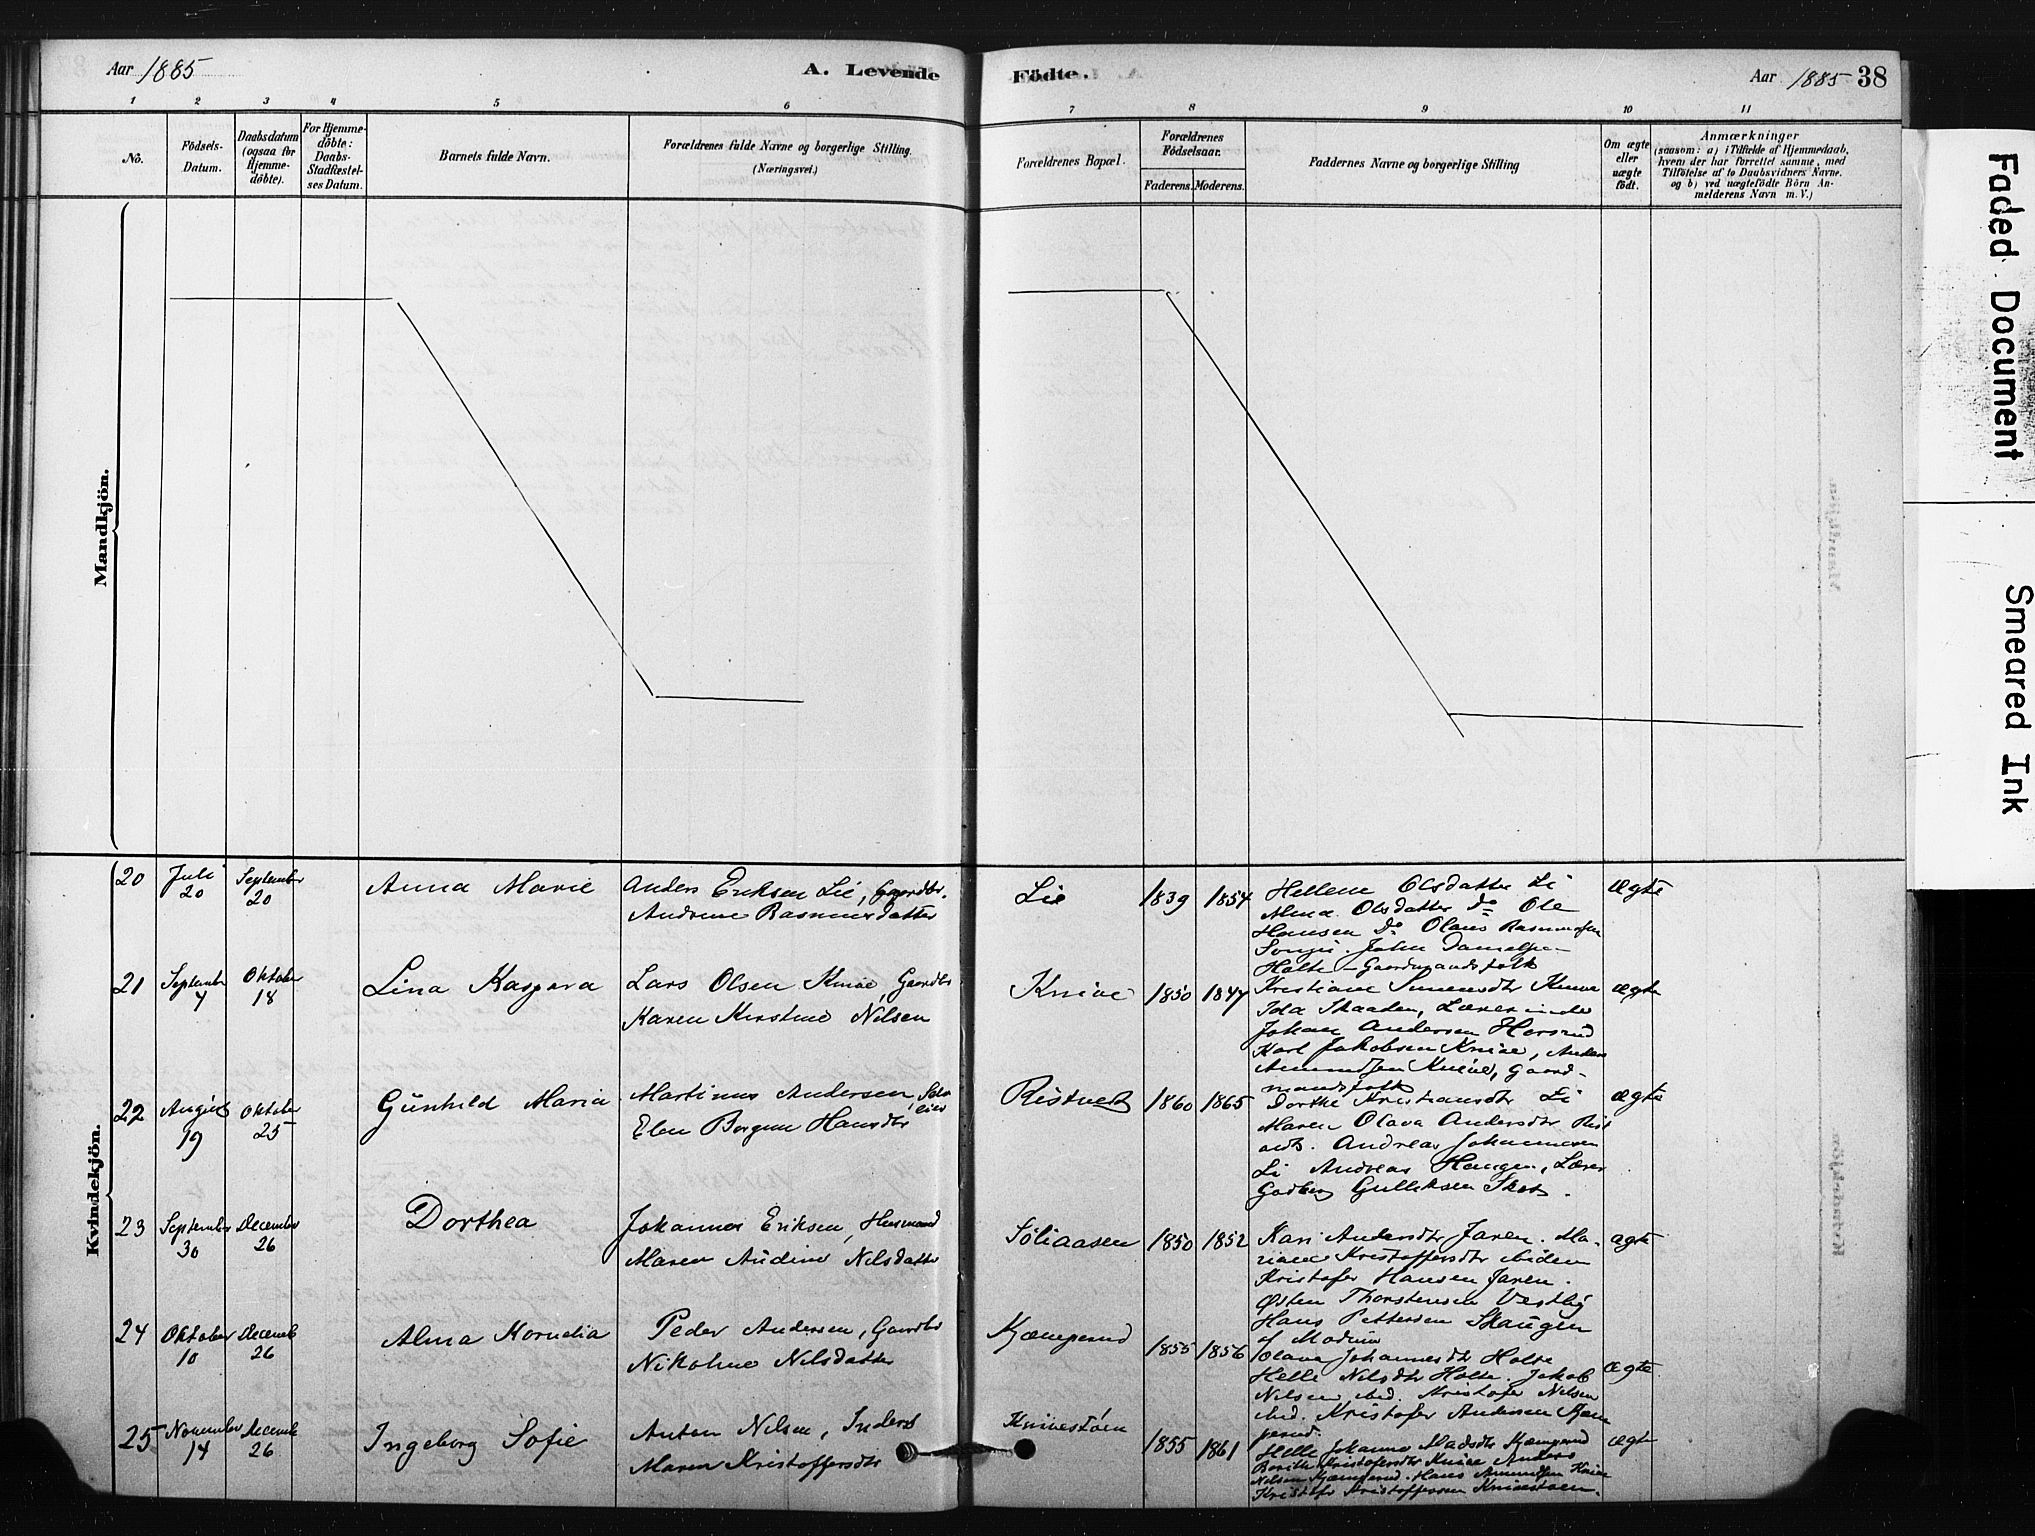 Aar 1885
A. Levende
Födte.
Aar 1885 38
1 2 3 4 5 6 7 8 9 10 11
No.
Födsels-
Datum.
Daabsdatum
(ogsaa for
Hjemme-
döbte).
For Hjemme-
döbte:
Daabs-
Stadfæstel-
ses Datum.
Barnets fulde Navn.
Forældrenes fulde Navne og borgerlige Stilling.
(Næringsvei.)
Forældrenes Bopæl.
Forældrenes
Födselsaar.
Faderens. Moderens.
Faddernes Navne og borgerlige Stilling
Om ægte
eller
uægte
födt.
Anmærkninger
(saasom: a) i Tilfælde af Hjemmedaab,
hvem der har forrettet samme, med
Tilföielse af to Daabsvidners Navne.
og b) ved uægtefödte Börn An-
melderens Navn m. V.)
Mandkjön.
Kvindekjön.
20
Juli
20
September
20
Anna Marie
Anders Eriksen Lie, Gaardbr.
Andrine Rasmusdatter
Lie
1839 1854
Hellene Olsdatter Li
Alma Olsdatter Do Ole
Hansen Do Olaus Rasmussen
John Danielsen
Holte - Gaardmandsfolk
Ægte
21
September
4
Oktober
18
Lina Kaspara
Lars Olsen Kniae, Gaardbr
Karen Kirstine Nilsen
Kniae
1850 1847
Kristiane
Ida Skaaden, Lærerinde
Johan Andersen Horsrud
Karl Jakobsen Kniae, Anders
Amundsen Kniae, Gaard-
mandsfolk
Ægte
22
August
19
Oktober
25
Gunhild Maria
Martinus Andersen, Selv
eier
Elen Borgine Hansdtr
Ristvedt
1860 1865
Dorthe Kristiansdtr Li
Maren Olava Andersdtr Rist
vedt. Andreas Johannesen
Li Andreas Haugen, Lærer
Gulliksen
Ægte
23
September
30
December
26
Dorthea
Johannes Eriksen, Husmand
Maren Audine Nilsdatter
Söliaasen
1850 1852
Kari Andersdtr Jaren. Ma-
riane Kristoffersdtr ibidem
Kristofer Hansen Jaren.
Østen Thorstensen Vestby
Hans Pettersen Skaugen
af Modum
Ægte
24
Oktober
10
Decemb
26
Alma Kornelia
Peder Andersen, Gaardbr
Nikoline Nilsdatter
Kjæmperud
1855 1856
Olava Johannesdtr Holte
Helle Nilsdtr Holte. Jakob
Nilsen ibid. Kristofer Nilsen
ibid. Kristofer Andersen Kjæm
perud.
Ægte
25
November
14
Decemb
26
Ingeborg Sofie
Anton Nilsen, Inderst
Maren Kristoffersdtr
Kniiestöen
1855 1861
Helle Johanne Madsdtr Kjæmperud
Berithe Kristofersdtr Kniae Anders
Nilsen Kjæmperud. Hans Amundsen Kniae
Kristofer Kristoffersen Kniiestöen.
Ægte
Faded Document
Smeared Ink